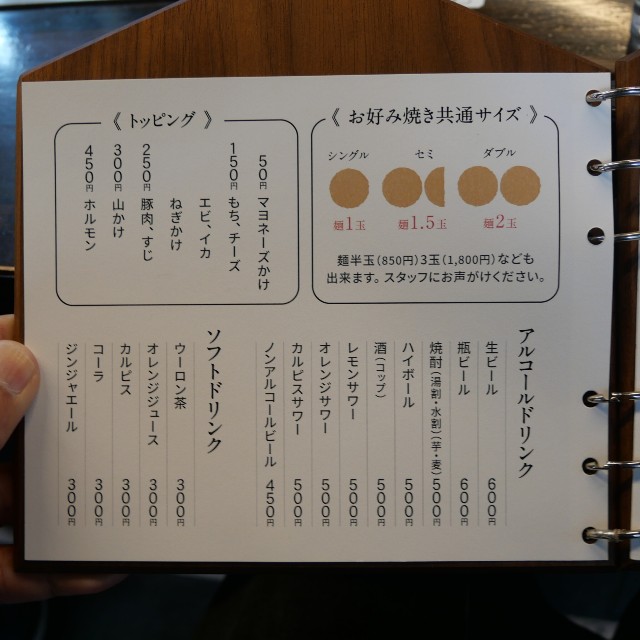 《 お好み焼き共通サイズ 》
シングル
セミ
ダブル
麺1玉
麺1.5玉
麺2玉
麺半玉(850円)3玉(1,800円)なども
出来ます。スタッフにお声がけください。
《 トッピング 》
50円 マヨネーズかけ
150円 もち、チーズ
エビ、イカ
ねぎかけ
250円 豚肉、すじ
300円 山かけ
450円 ホルモン
アルコールドリンク
生ビール 600円
瓶ビール 600円
焼酎(湯割・水割)(芋・麦) 500円
ハイボール 500円
酒(コップ) 500円
レモンサワー 500円
オレンジサワー 500円
カルピスサワー 500円
ノンアルコールビール 450円
ソフトドリンク
ウーロン茶 300円
オレンジジュース 300円
カルピス 300円
コーラ 300円
ジンジャエール 300円